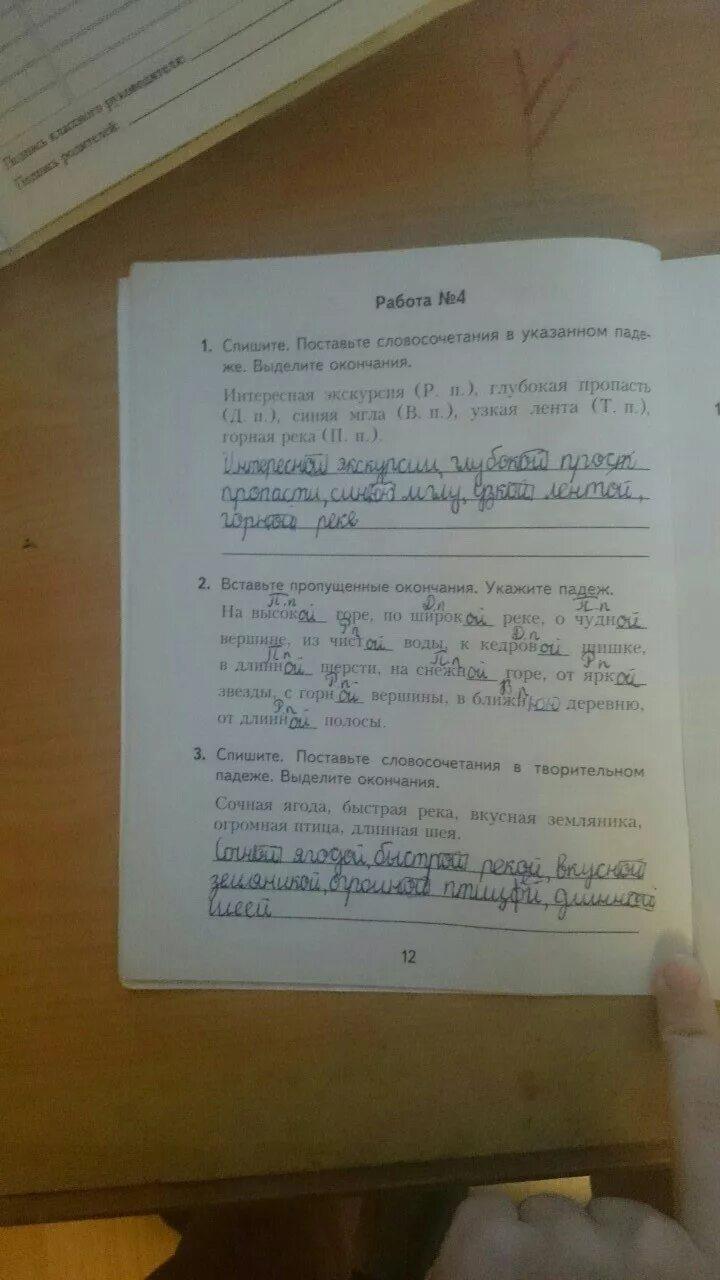 Подпись классного руководителя:
Подпись родителей:
Работа №4
1. Спишите. Поставьте словосочетания в указанном паде-
же. Выделите окончания.
Интересная экскурсия (Р. п.), глубокая пропасть
(Д. п.), синяя мгла (В. п.), узкая лента (Т. п.),
горная река (П. п.).
Интересной экскурсии, глубокой
пропасти, мглу, узкой лентой,
горной реке
2. Вставьте пропущенные окончания. Укажите падеж.
П.п Д.п П.п
На высокой горе, по широкой реке, о чудной
Р п Д п
вершине, из чистой воды, к кедровой шишке,
П п П.п Р п
в длинной шерсти, на снежной горе, от яркой
Р п В п
звезды, с горной вершины, в ближнюю деревню,
Р п
от длинной полосы.
3. Спишите. Поставьте словосочетания в творительном
падеже. Выделите окончания.
Сочная ягода, быстрая река, вкусная земляника,
огромная птица, длинная шея.
Сочной ягодой, быстрой рекой, вкусной
земляникой, огромной птицей, длинной
шеей
12